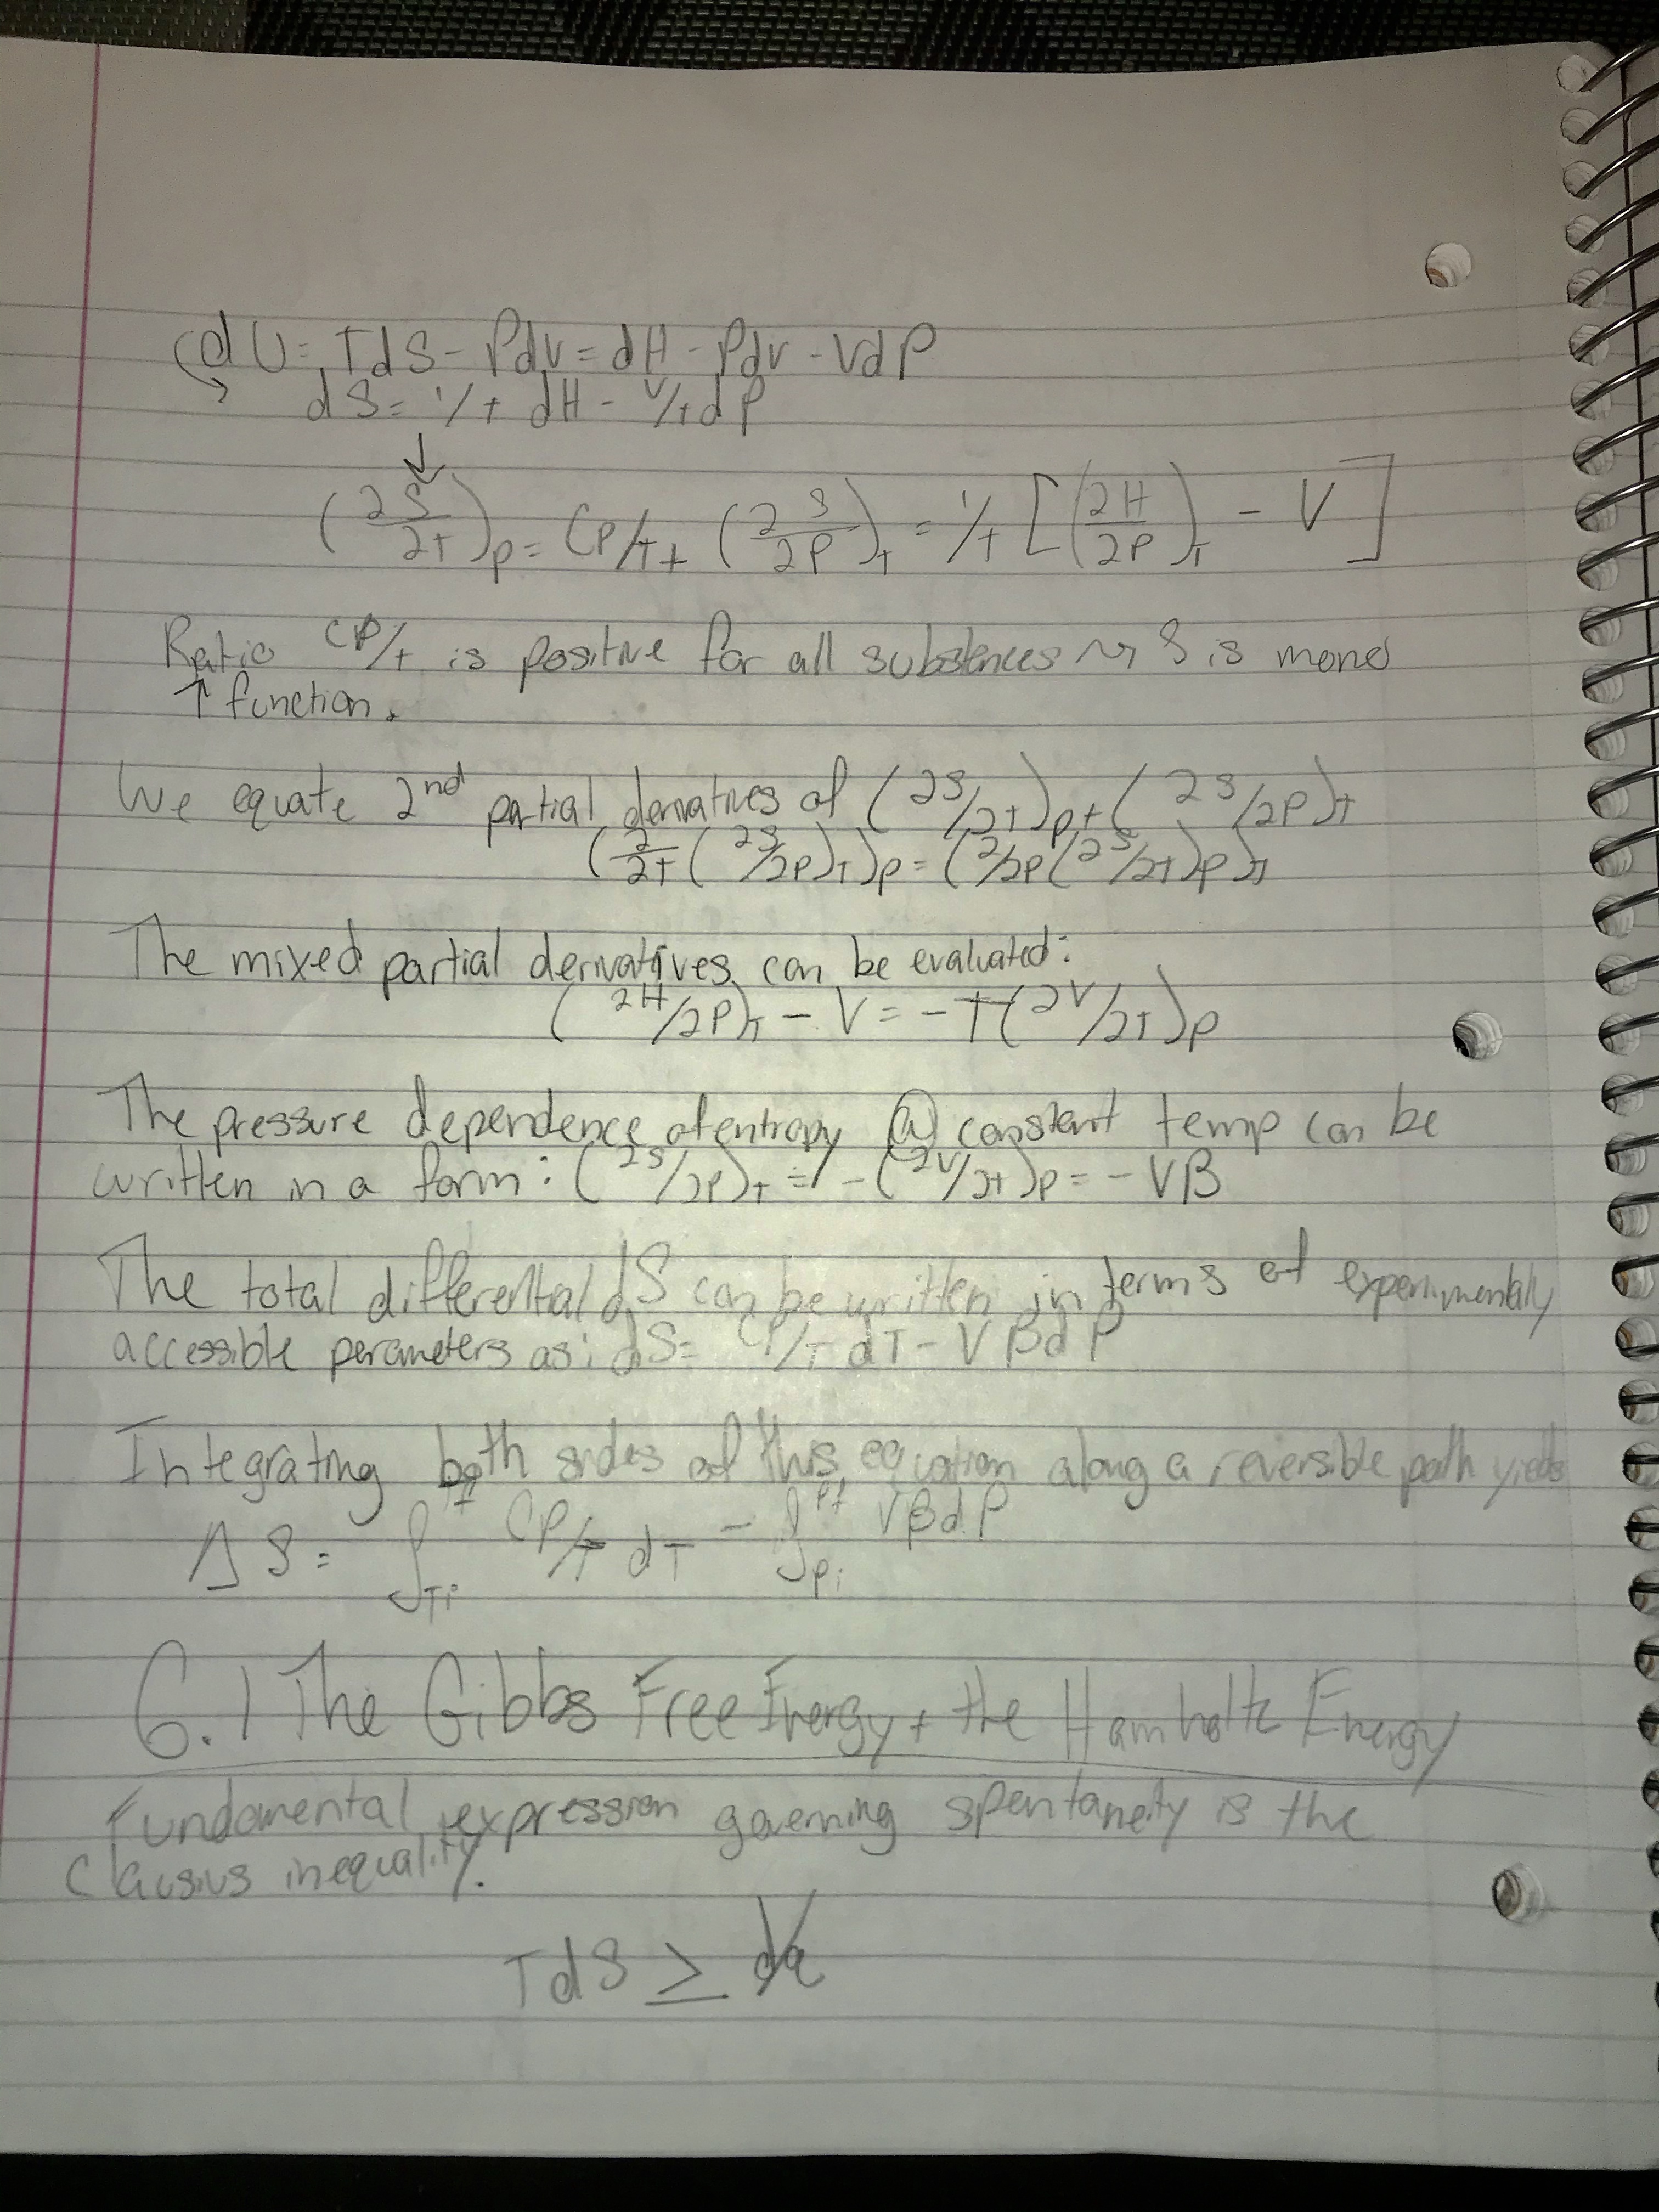 dU = TdS - PdV = dH - PdV - VdP
dS = 1/T dH - V/T dP
↓
(∂S/∂T)P = CP/T + (∂S/∂P)T = 1/T [(∂H/∂P)T - V]
Ratio CP/T is positive for all substences ⇝ S is mono
↑ function.
We equate 2nd partial derivatives of (∂S/∂T)P + (∂S/∂P)T
(∂/∂T (∂S/∂P)T)P = (∂/∂P (∂S/∂T)P)T
The mixed partial derivatives can be evaluated:
(∂H/∂P)T - V = -T(∂V/∂T)P
The pressure dependence of entropy @ constant temp can be
written in a form: (∂S/∂P)T = -(∂V/∂T)P = -Vβ
The total differential dS can be written in terms of experimentally
accessible parameters as: dS = CP/T dT - VβdP
Integrating both sides of this equation along a reversible path yields
ΔS = ∫Ti Tf CP/T dT - ∫Pi Pf VβdP
6.1 The Gibbs Free Energy + the Hamholtz Energy
Fundamental expression governing spentaneity is the
Clausius inequality.
TdS ≥ đq